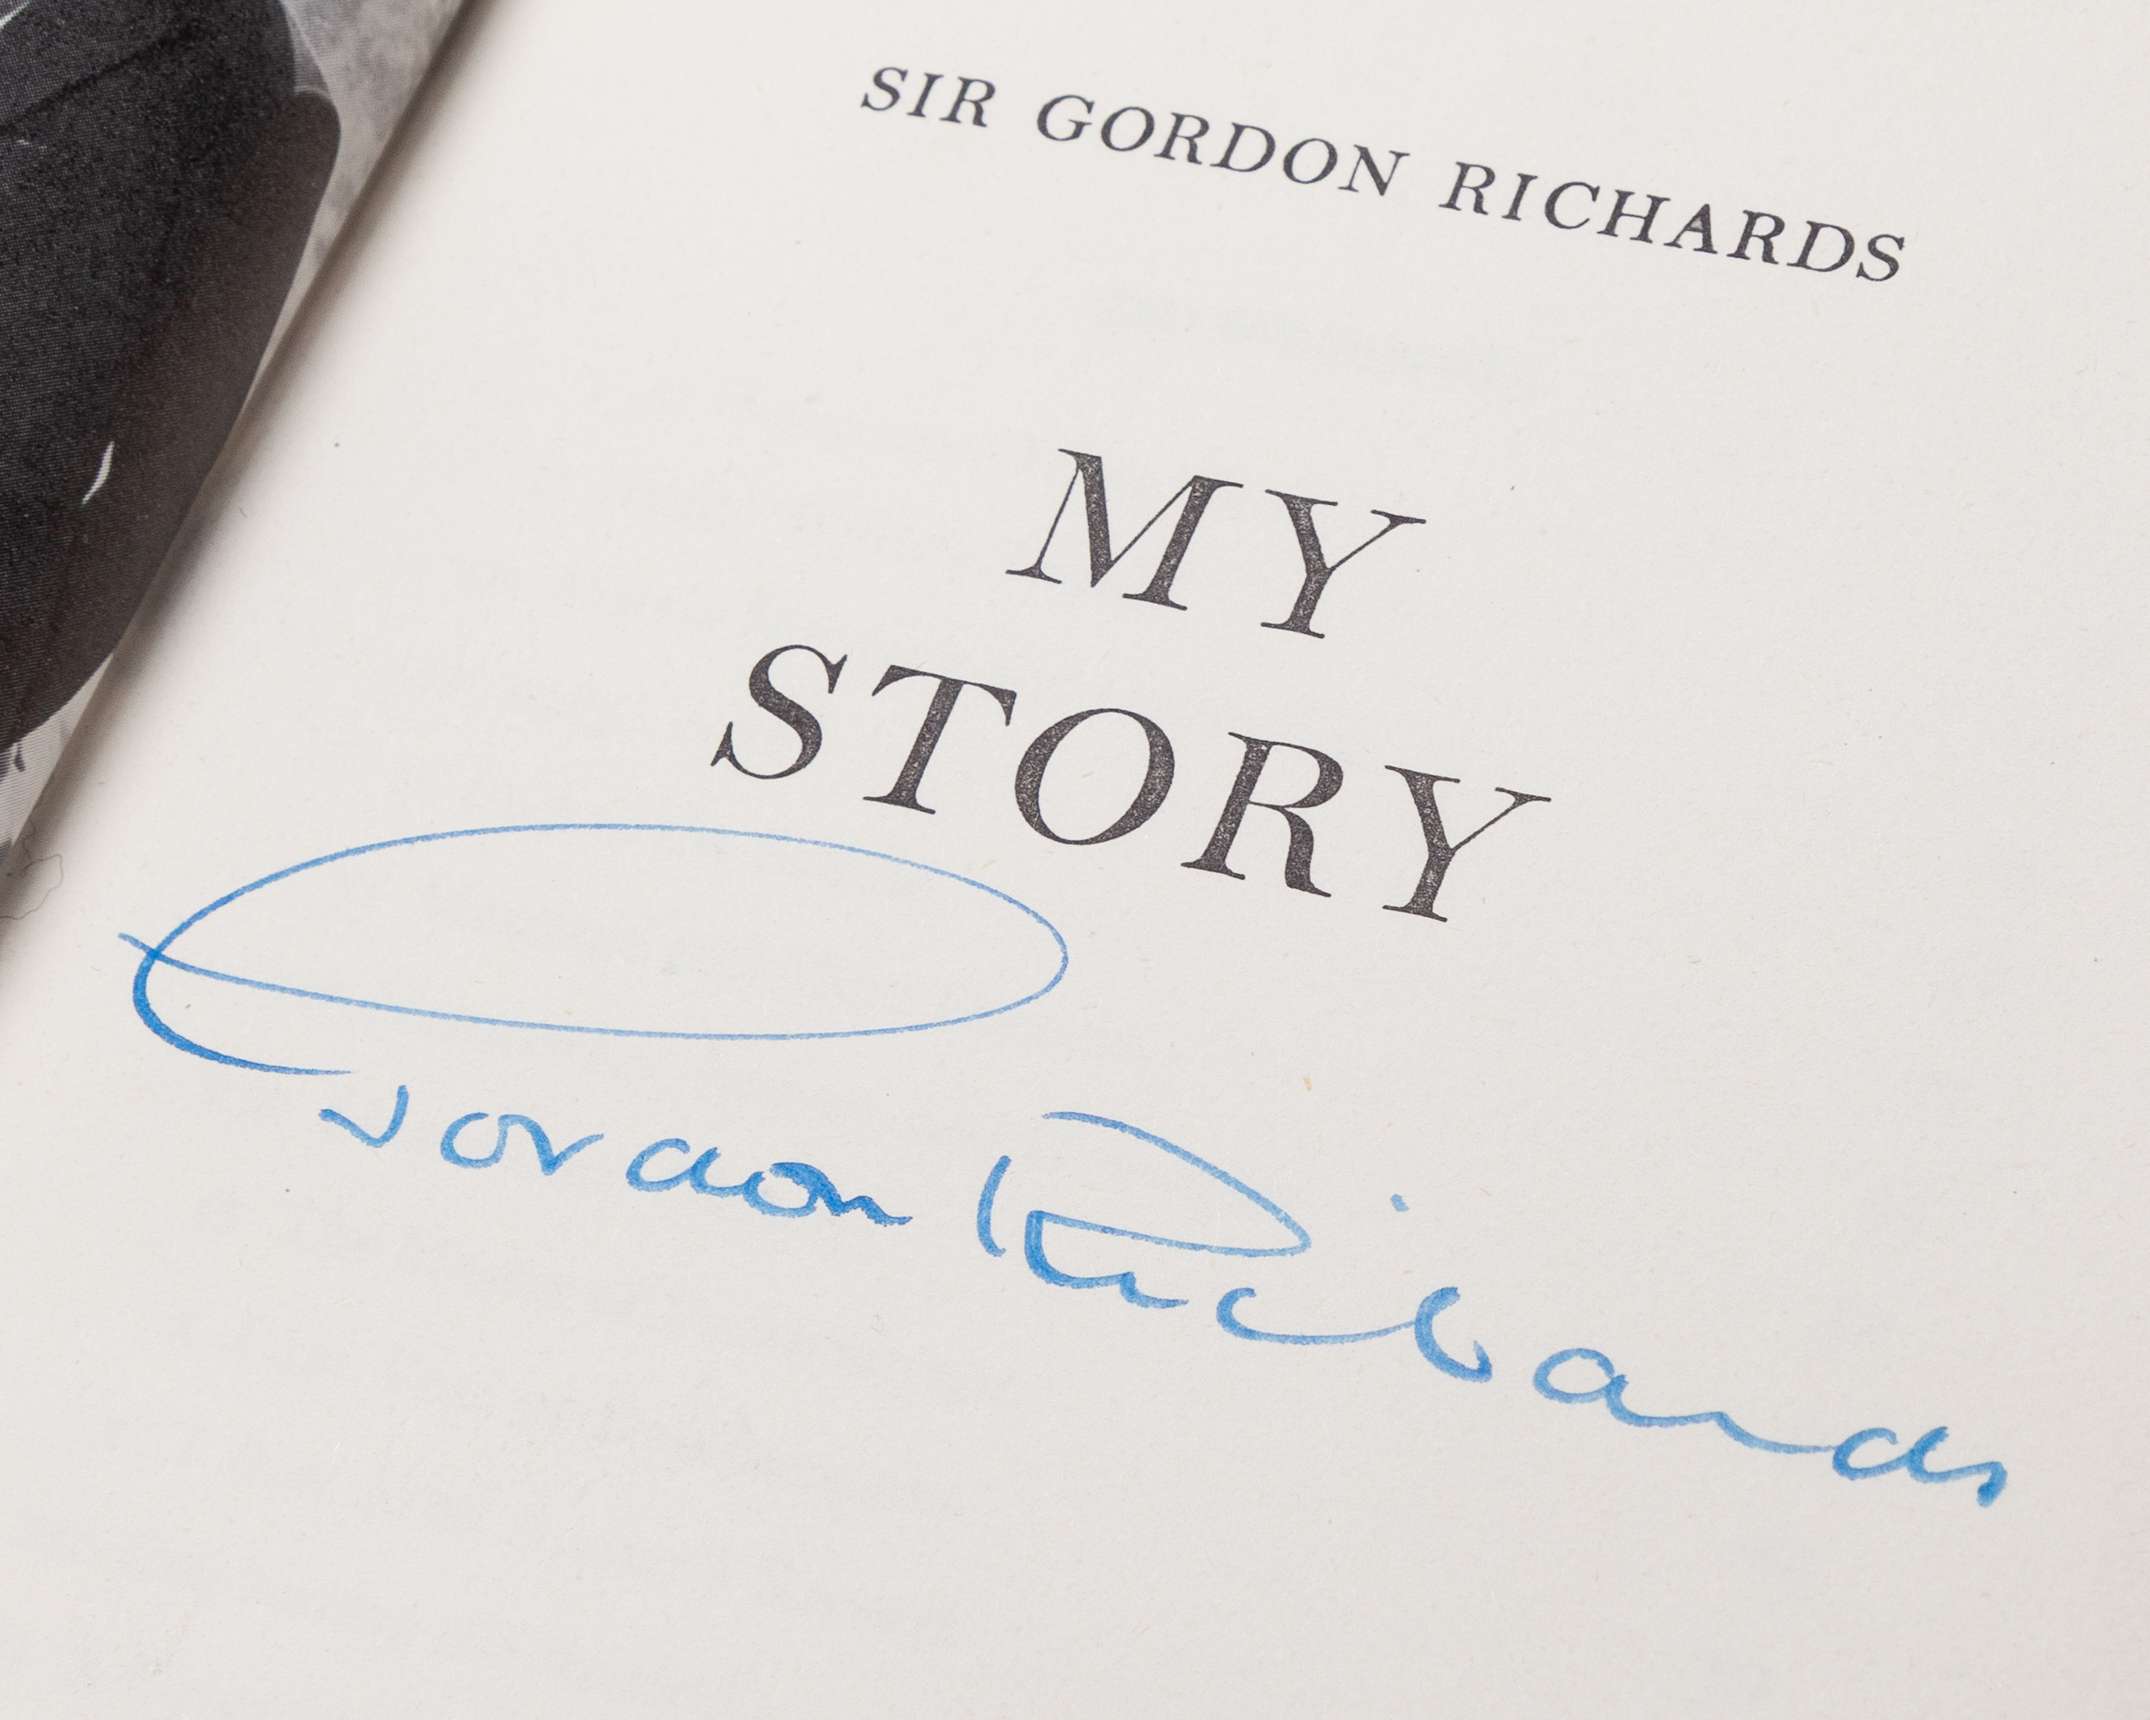 SIR GORDON RICHARDS
MY
STORY
Gordon Richards